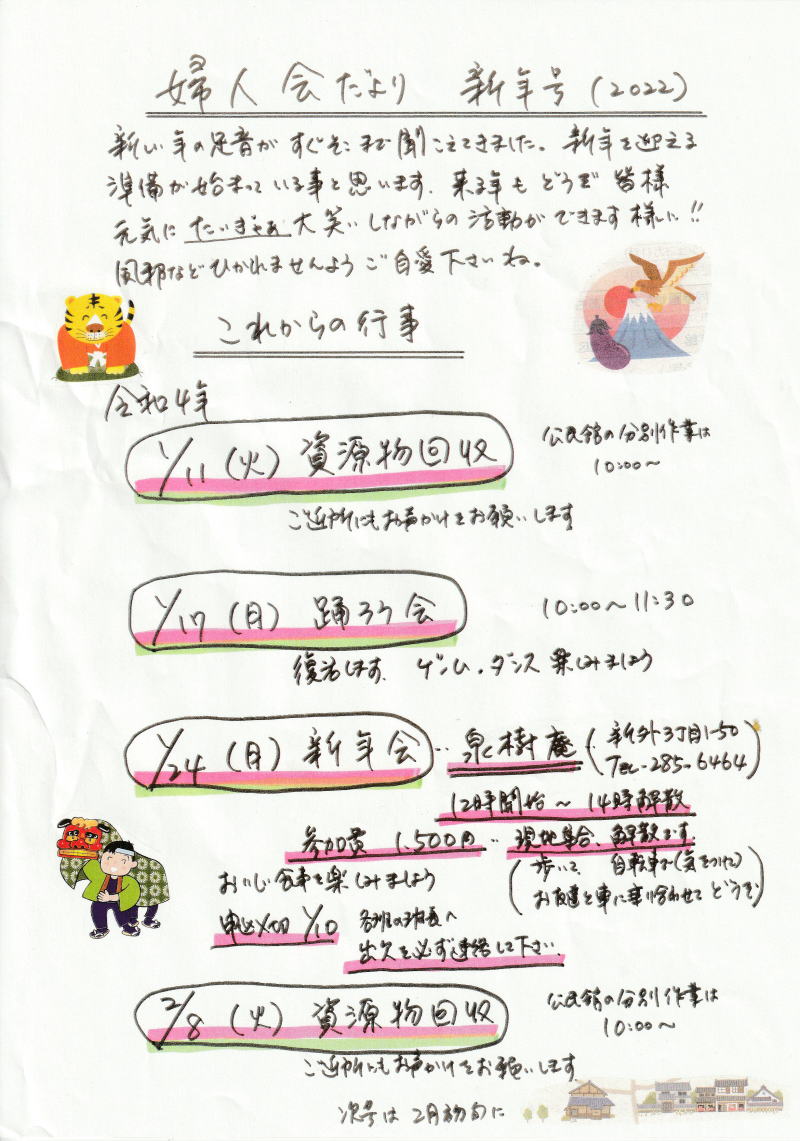 婦人会だより 新年号(2022)
新しい年の足音がすぐそこまで聞こえてきました。新年を迎える
準備が始まっている事と思います。来る年もどうぞ皆様
元気にたいぎゃあ大笑いしながらの活動ができます様に!!
風邪などひかれませんようご自愛下さいね。
これからの行事
令和4年
1/11(火)資源物回収
公民館の分別作業は
10:00〜
ご近所にもお声かけをお願いします
1/17(月)踊ろう会
10:00〜11:30
復活します。ゲーム・ダンス楽しみましょう
1/24(月)新年会‥泉樹庵
(新外3丁目1-50
TEL-285-6464)
12時開始〜14時解散
参加費 1,500円‥現地集合、解散です。
おいしい食事を楽しみましょう
(歩いて、自転車で(気をつけて)
お友達と車に乗り合わせてどうぞ)
申込〆切 1/10
各班の班長へ
出欠を必ず連絡して下さい。
2/8(火)資源物回収
公民館の分別作業は
10:00〜
ご近所にもお声かけをお願いします
次号は2月初旬に